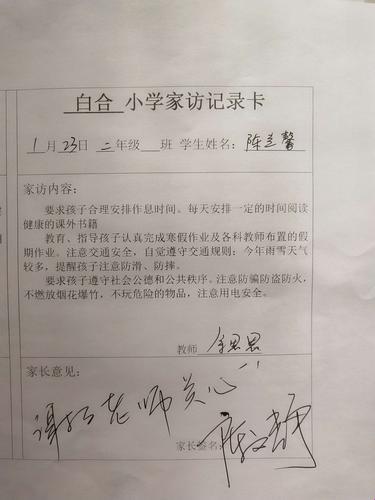 白合 小学家访记录卡
1月23日 二年级 班 学生姓名: 陈兰馨
家访内容:
要求孩子合理安排作息时间。每天安排一定的时间阅读
健康的课外书籍
教育、指导孩子认真完成寒假作业及各科教师布置的假
期作业。注意交通安全,自觉遵守交通规则;今年雨雪天气
较多,提醒孩子注意防滑、防摔。
要求孩子遵守社会公德和公共秩序。注意防骗防盗防火,
不燃放烟花爆竹,不玩危险的物品,注意用电安全。
教师 余思思
家长意见:
谢谢老师关心!
家长签名: